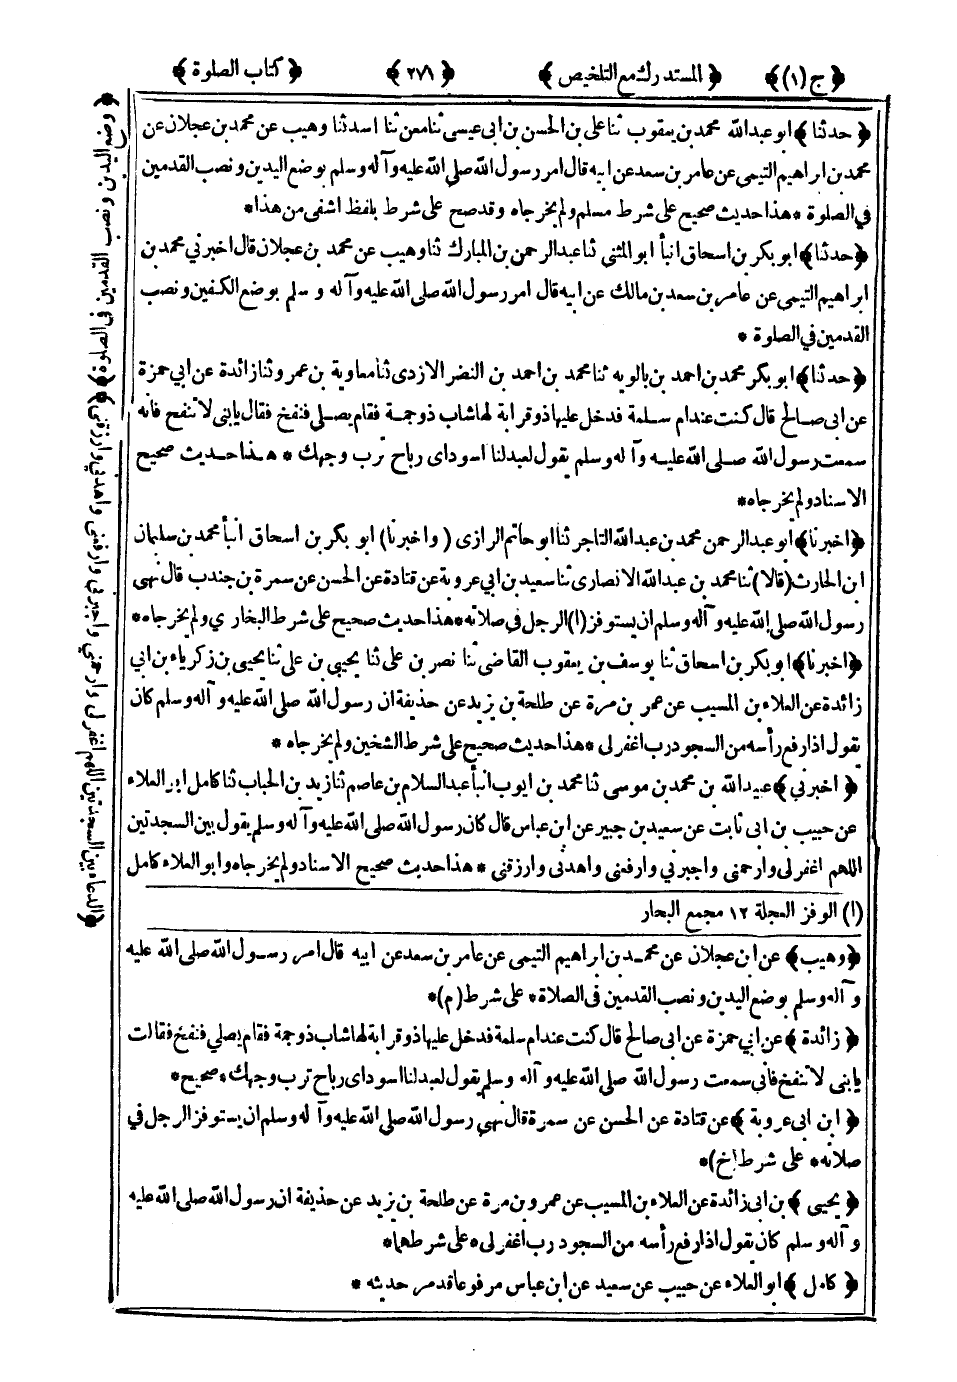 ﴿ ج (١) ﴾ ﴿ المستدرك مع التلخيص ﴾ ﴿ ٢٧١ ﴾ ﴿ كتاب الصلوة ﴾
﴿ حدثنا ﴾ ابو عبدالله محمد بن يعقوب ثنا على بن الحسن بن ابى عيسى ثنا معن ثنا اسد ثنا وهيب عن محمد بن عجلان عن
محمد بن ابراهيم التيمى عن عامر بن سعد عن ابيه قال امر رسول الله صلى الله عليه وآله وسلم بوضع اليدين ونصب القدمين
فى الصلوة * هذا حديث صحيح على شرط مسلم ولم يخرجاه وقد صح على شرط بلفظ اشفى من هذا *
﴿ حدثنا ﴾ ابو بكر بن اسحاق انبأ ابو المثنى ثنا عبدالرحمن بن المبارك ثنا وهيب عن محمد بن عجلان قال اخبرني محمد بن
ابراهيم التيمى عن عامر بن سعد بن مالك عن ابيه قال امر رسول الله صلى الله عليه وآله وسلم بوضع الكفين ونصب
القدمين في الصلوة *
﴿ حدثنا ﴾ ابو بكر محمد بن احمد بن بالويه ثنا محمد بن احمد بن النضر الازدى ثنا معاوية بن عمرو ثنا زائدة عن ابي حمزة
عن ابى صالح قال كنت عند ام سلمة فدخل عليها ذو قرابة لها شاب ذو جمة فقام يصلى فنفخ فقال يابنى لا تنفخ فانه
سمعت رسول الله صلى الله عليه وآله وسلم يقول لعبد لنا اسود اى رباح ترب وجهك * هذا حديث صحيح
الاسناد ولم يخرجاه *
﴿ اخبرنا ﴾ ابو عبدالرحمن محمد بن عبدالله التاجر ثنا ابو حاتم الرازى ( واخبرنا ) ابو بكر بن اسحاق انبأ محمد بن سليمان
ابن الحارث (قالا) ثنا محمد بن عبدالله الانصارى ثنا سعيد بن ابي عروبة عن قتادة عن الحسن عن سمرة بن جندب قال نهى
رسول الله صلى الله عليه وآله وسلم ان يستوفز (١) الرجل في صلاته * هذا حديث صحيح على شرط البخاري ولم يخرجاه *
﴿ اخبرنا ﴾ ابو بكر بن اسحاق ثنا يوسف بن يعقوب القاضى ثنا نصر بن على ثنا يحيى بن على ثنا يحيى بن زكرياء بن ابي
زائدة عن العلاء بن المسيب عن عمر بن مرة عن طلحة بن يزيد عن حذيفة ان رسول الله صلى الله عليه وآله وسلم كان
يقول اذا رفع رأسه من السجود رب اغفرلى * هذا حديث صحيح على شرط الشخين ولم يخرجاه *
﴿ اخبرني ﴾ عبيدالله بن محمد بن موسى ثنا محمد بن ايوب انبأ عبدالسلام بن عاصم ثنا زيد بن الحباب ثنا كامل ابو العلاء
عن حبيب بن ابى ثابت عن سعيد بن جبير عن ابن عباس قال كان رسول الله صلى الله عليه وآله وسلم يقول بين السجدتين
اللهم اغفرلى وارحمنى واجبرني وارفعنى واهدنى وارزقنى * هذا حديث صحيح الاسناد ولم يخرجاه وابو العلاء كامل
(١) الوفز العجلة ١٢ مجمع البحار
﴿ وهيب ﴾ عن ابن عجلان عن محمد بن ابراهيم التيمى عن عامر بن سعد عن ابيه قال امر رسول الله صلى الله عليه
وآله وسلم بوضع اليدين ونصب القدمين فى الصلاة * على شرط (م) *
﴿ زائدة ﴾ عن ابي حمزة عن ابى صالح قال كنت عند ام سلمة فدخل عليها ذو قرابة لها شاب ذو جمة فقام يصلي فنفخ فقالت
يابنى لا تنفخ فاني سمعت رسول الله صلى الله عليه وآله وسلم يقول لعبد لنا اسود اى رباح ترب وجهك * صحيح *
﴿ ابن ابى عروبة ﴾ عن قتادة عن الحسن عن سمرة قال نهى رسول الله صلى الله عليه وآله وسلم ان يستوفز الرجل في
صلاته * على شرط (خ) *
﴿ يحيى ﴾ بن ابى زائدة عن العلاء بن المسيب عن عمرو بن مرة عن طلحة بن يزيد عن حذيفة ان رسول الله صلى الله عليه
وآله وسلم كان يقول اذا رفع رأسه من السجود رب اغفرلى * على شرطهما *
﴿ كامل ﴾ ابو العلاء عن حبيب عن سعيد عن ابن عباس مرفوعا قد مر حديثه *
﴿ وضع اليدين ونصب القدمين في الصلوة ﴾
﴿ الدعاء بين السجدتين اللهم اغفرلى وارحمني واجبرني وارفعنى واهدني وارزقنى ﴾